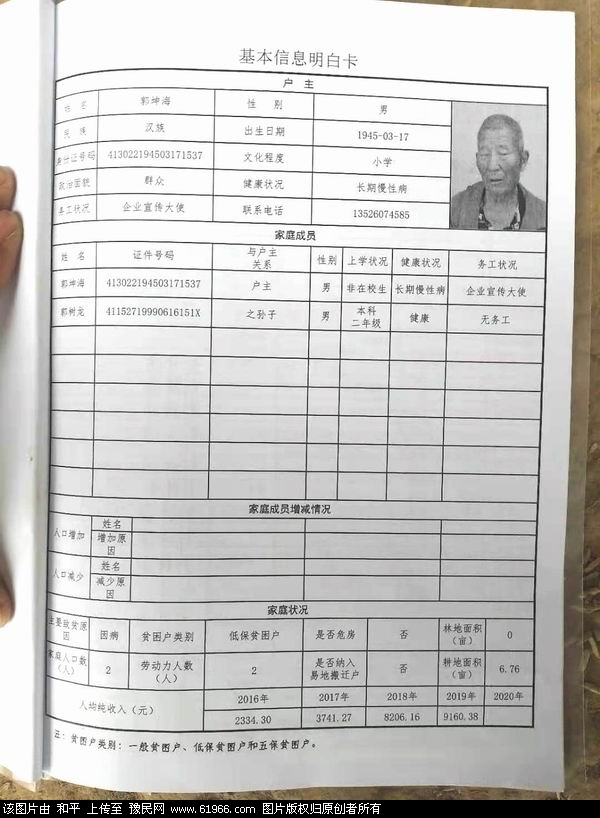 基本信息明白卡
户 主
姓 名 郭坤海 性 别 男
民 族 汉族 出生日期 1945-03-17
身份证号码 413022194503171537 文化程度 小学
政治面貌 群众 健康状况 长期慢性病
务工状况 企业宣传大使 联系电话 13526074585
家庭成员
姓 名 证件号码 与户主关系 性别 上学状况 健康状况 务工状况
郭坤海 413022194503171537 户主 男 非在校生 长期慢性病 企业宣传大使
郭树龙 41152719990616151X 之孙子 男 本科二年级 健康 无务工
家庭成员增减情况
人口增加 姓名
增加原因
人口减少 姓名
减少原因
家庭状况
主要致贫原因 因病 贫困户类别 低保贫困户 是否危房 否 林地面积(亩) 0
家庭人口数(人) 2 劳动力人数(人) 2 是否纳入易地搬迁户 否 耕地面积(亩) 6.76
人均纯收入(元) 2016年 2017年 2018年 2019年 2020年
2334.30 3741.27 8206.16 9160.38
注：贫困户类别：一般贫困户、低保贫困户和五保贫困户。
该图片由 和平 上传至 豫民网 www.61966.com 图片版权归原创者所有